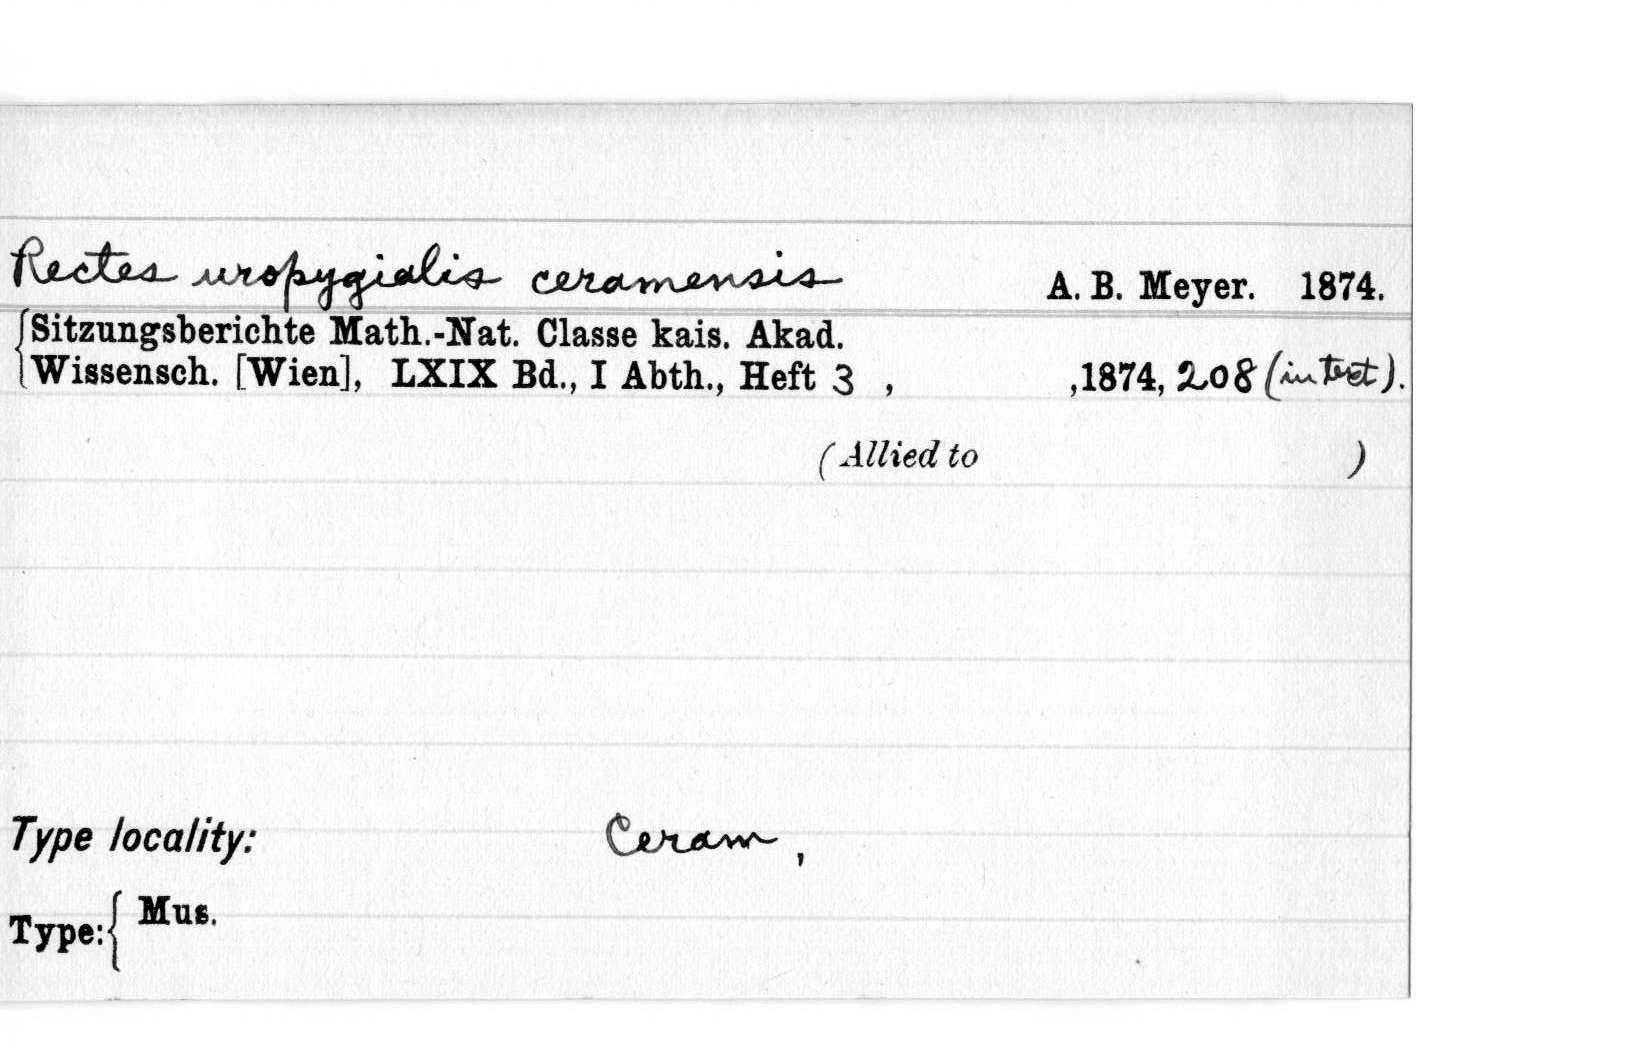 Rectes uropygialis ceramensis A. B. Meyer. 1874.
Sitzungsberichte Math.-Nat. Classe kais. Akad.
Wissensch. [Wien], LXIX Bd., I Abth., Heft 3 , ,1874, 208 (in text).
(Allied to )
Type locality: Ceram,
Type: { Mus.